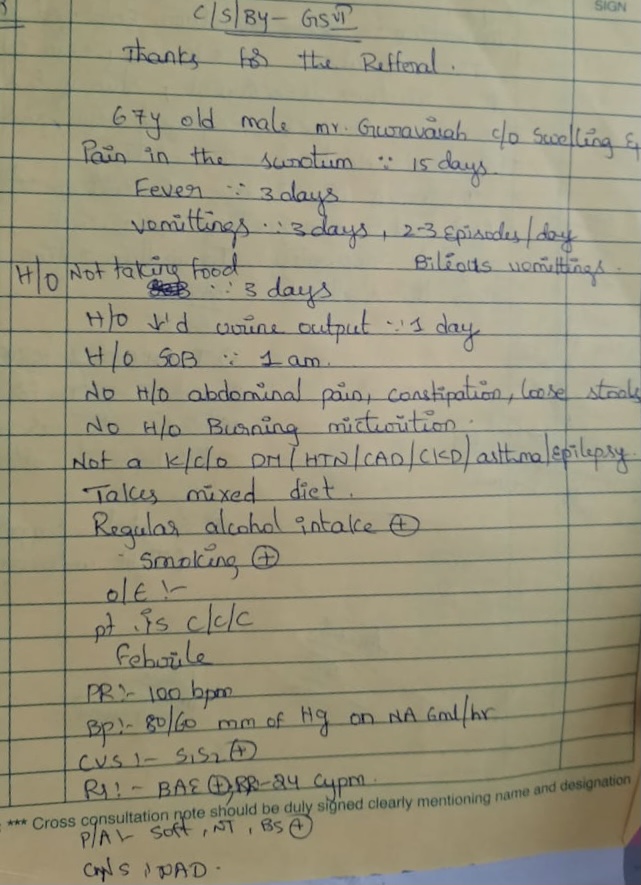 SIGN
C/S/By - GSVI
Thanks for the Refferal.
67y old male mr. Guravaiah c/o Swelling &
Pain in the scrotum ∵ 15 days.
Fever ∵ 3 days
vomittings ∵ 3 days, 2-3 Episodes/day
Bilious vomittings.
H/O Not taking food
∵ 3 days
H/O ↓'d urine output ∵ 1 day
H/O SOB ∵ 1 am.
No H/O abdominal pain, constipation, loose stools
No H/O Burning micturition.
Not a K/C/O DM/HTN/CAD/CKD/asthma/epilepsy.
Takes mixed diet.
Regular alcohol intake ⊕
Smoking ⊕
O/E :-
pt is c/c/c
Febrile
PR:- 100 bpm
BP:- 80/60 mm of Hg on NA 6ml/hr
CVS :- S1S2 ⊕
RS:- BAE ⊕, RR-24 cypm.
*** Cross consultation note should be duly signed clearly mentioning name and designation
P/A:- Soft, NT, BS ⊕
CNS : NAD.